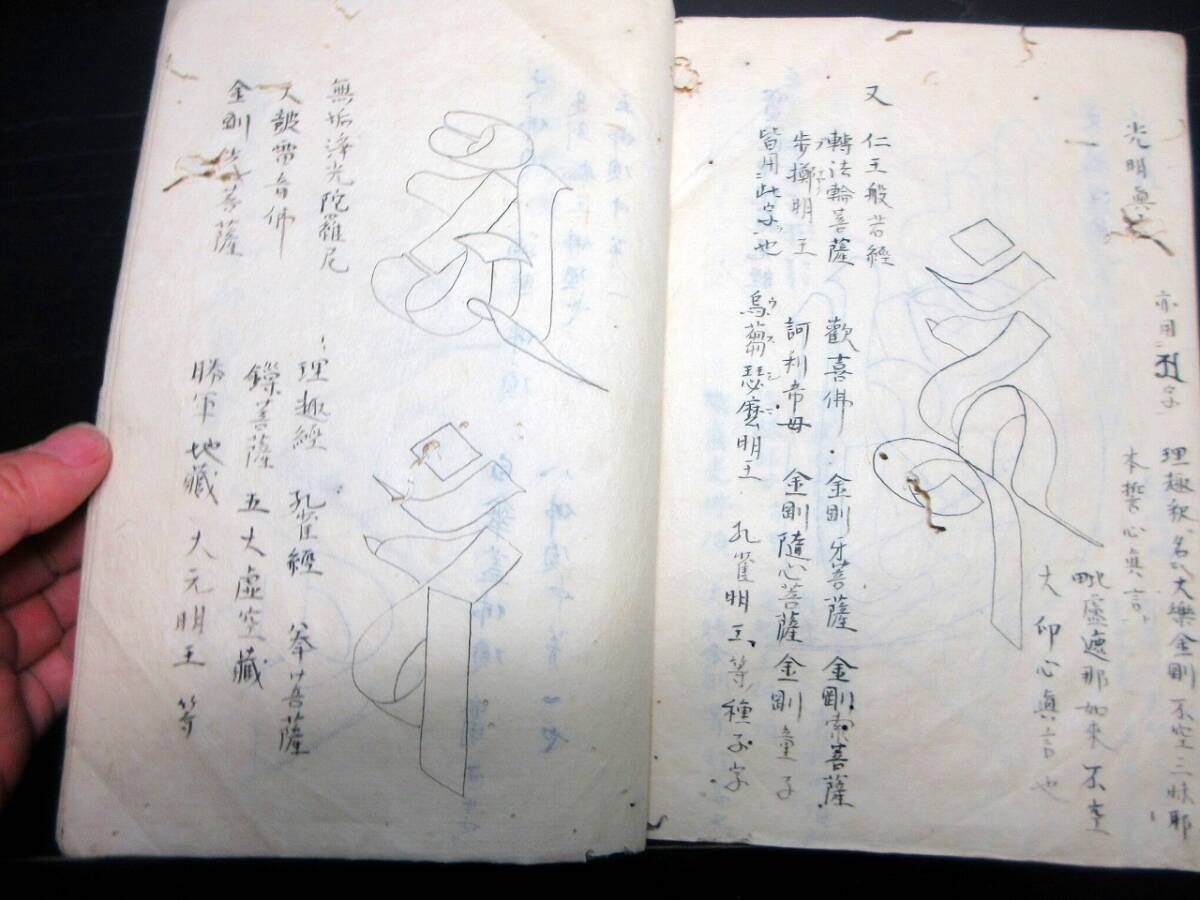 光明真
亦用
字
理趣釈名大樂金剛不空三昧耶
本誓心真言
毗盧遮那如來不空
大印心真言也
又
仁王般若經
轉法輪菩薩
歡喜佛・金剛牙菩薩 金剛索菩薩
步擲明王
訶利帝母 金剛隨心菩薩 金剛童子
皆用此字也
烏蒭瑟麽明王 孔雀明王等種子字
無垢淨光陀羅尼
天皷雷音佛
金剛
菩薩
理趣經 孔雀經 拳菩薩
鏁菩薩 五大虛空藏
勝軍地藏 大元明王 等